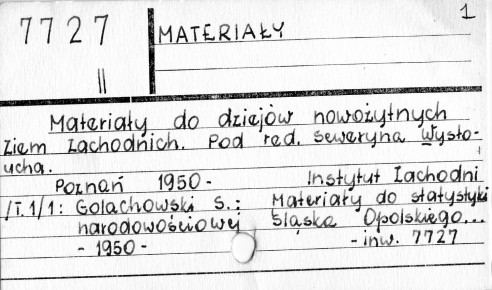 1
7727 MATERIAŁY
II
Materiały do dziejów nowożytnych
Ziem Zachodnich. Pod red. Seweryna Wysło-
ucha.
Poznań 1950- Instytut Zachodni
/T.1/1: Golachowski S.: Materiały do statystyki
narodowościowej Śląska Opolskiego...
- 1950 - - inw. 7727